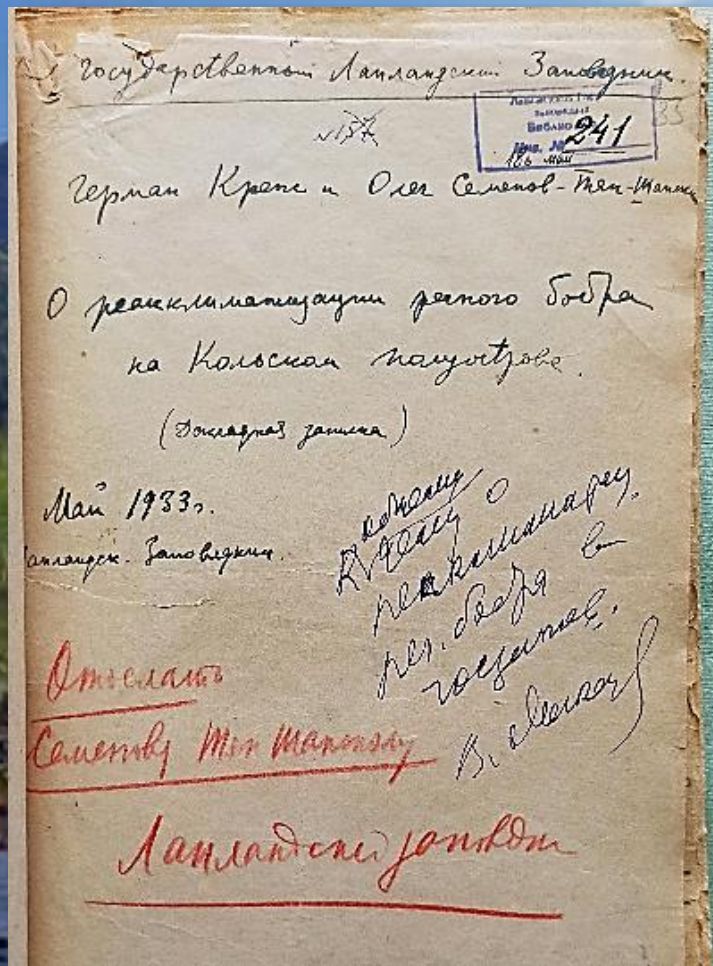 Государственный Лапландский Заповедник.
№137
Библио
Инв. № 241
Герман Крепс и Олег Семенов-Тян-Шански
О реакклиматизации речного бобра
на Кольском полуострове.
(Докладная записка)
Май 1933г.
Лапландск. Заповедник.
К
о
реакклиматизац.
реч. бобра в
госзапов.
Отослать
Семенову Тян Шанскому
Лапландский заповедн